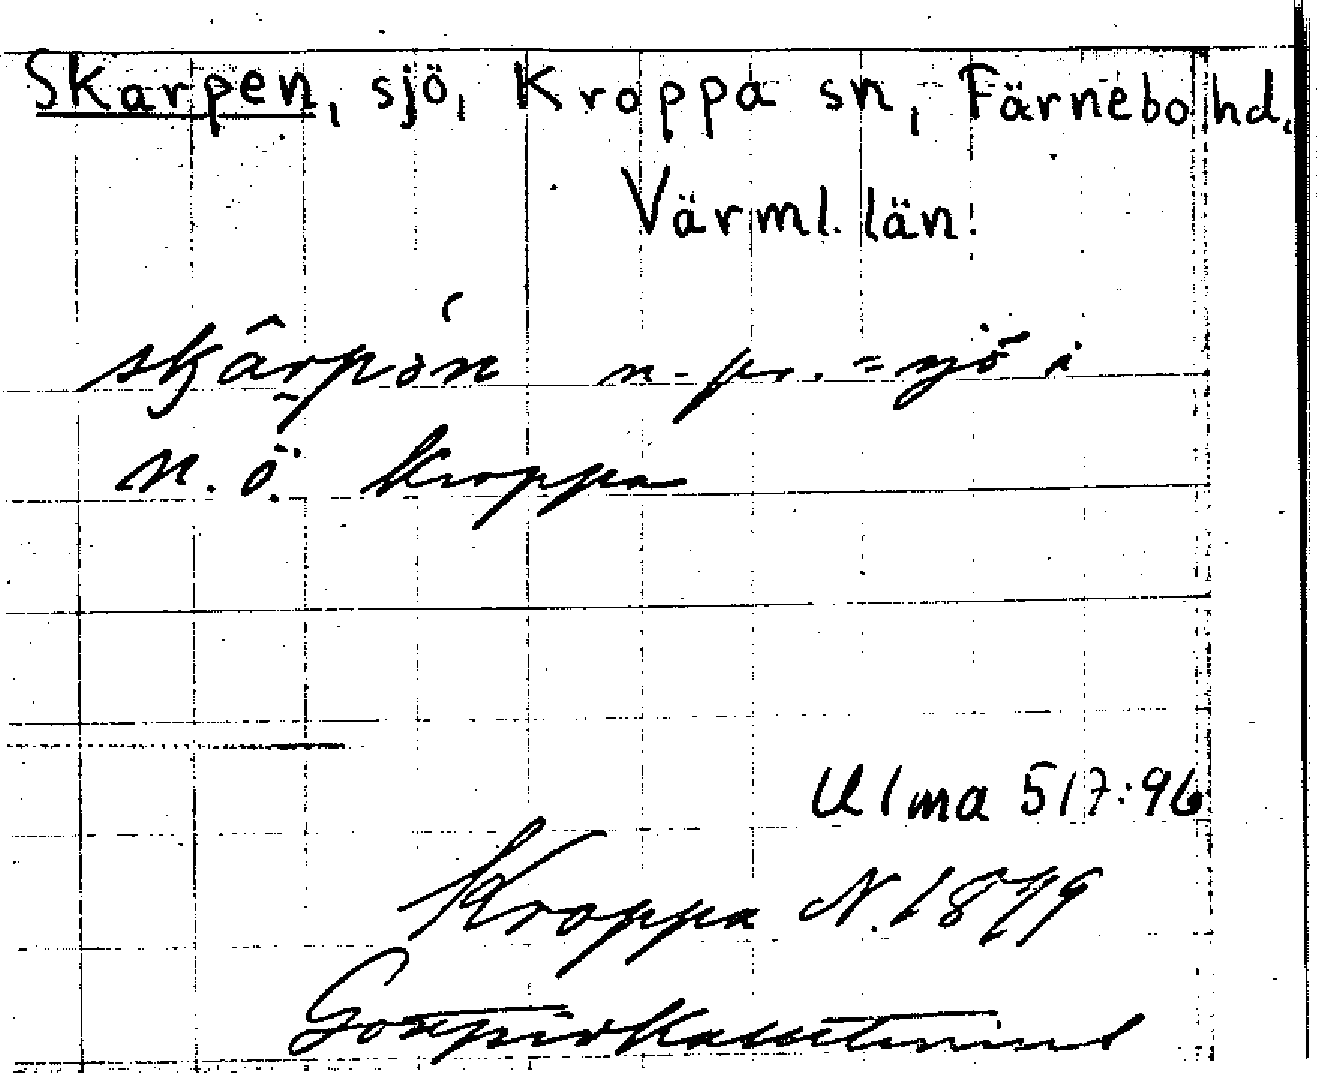 Skarpen, sjö, Kroppa sn, Färnebo hd,
Värml. län.
skârpön n. pr. = sjö i
n. ö. Kroppa
Ulma 517:96
Kroppa N. 1879